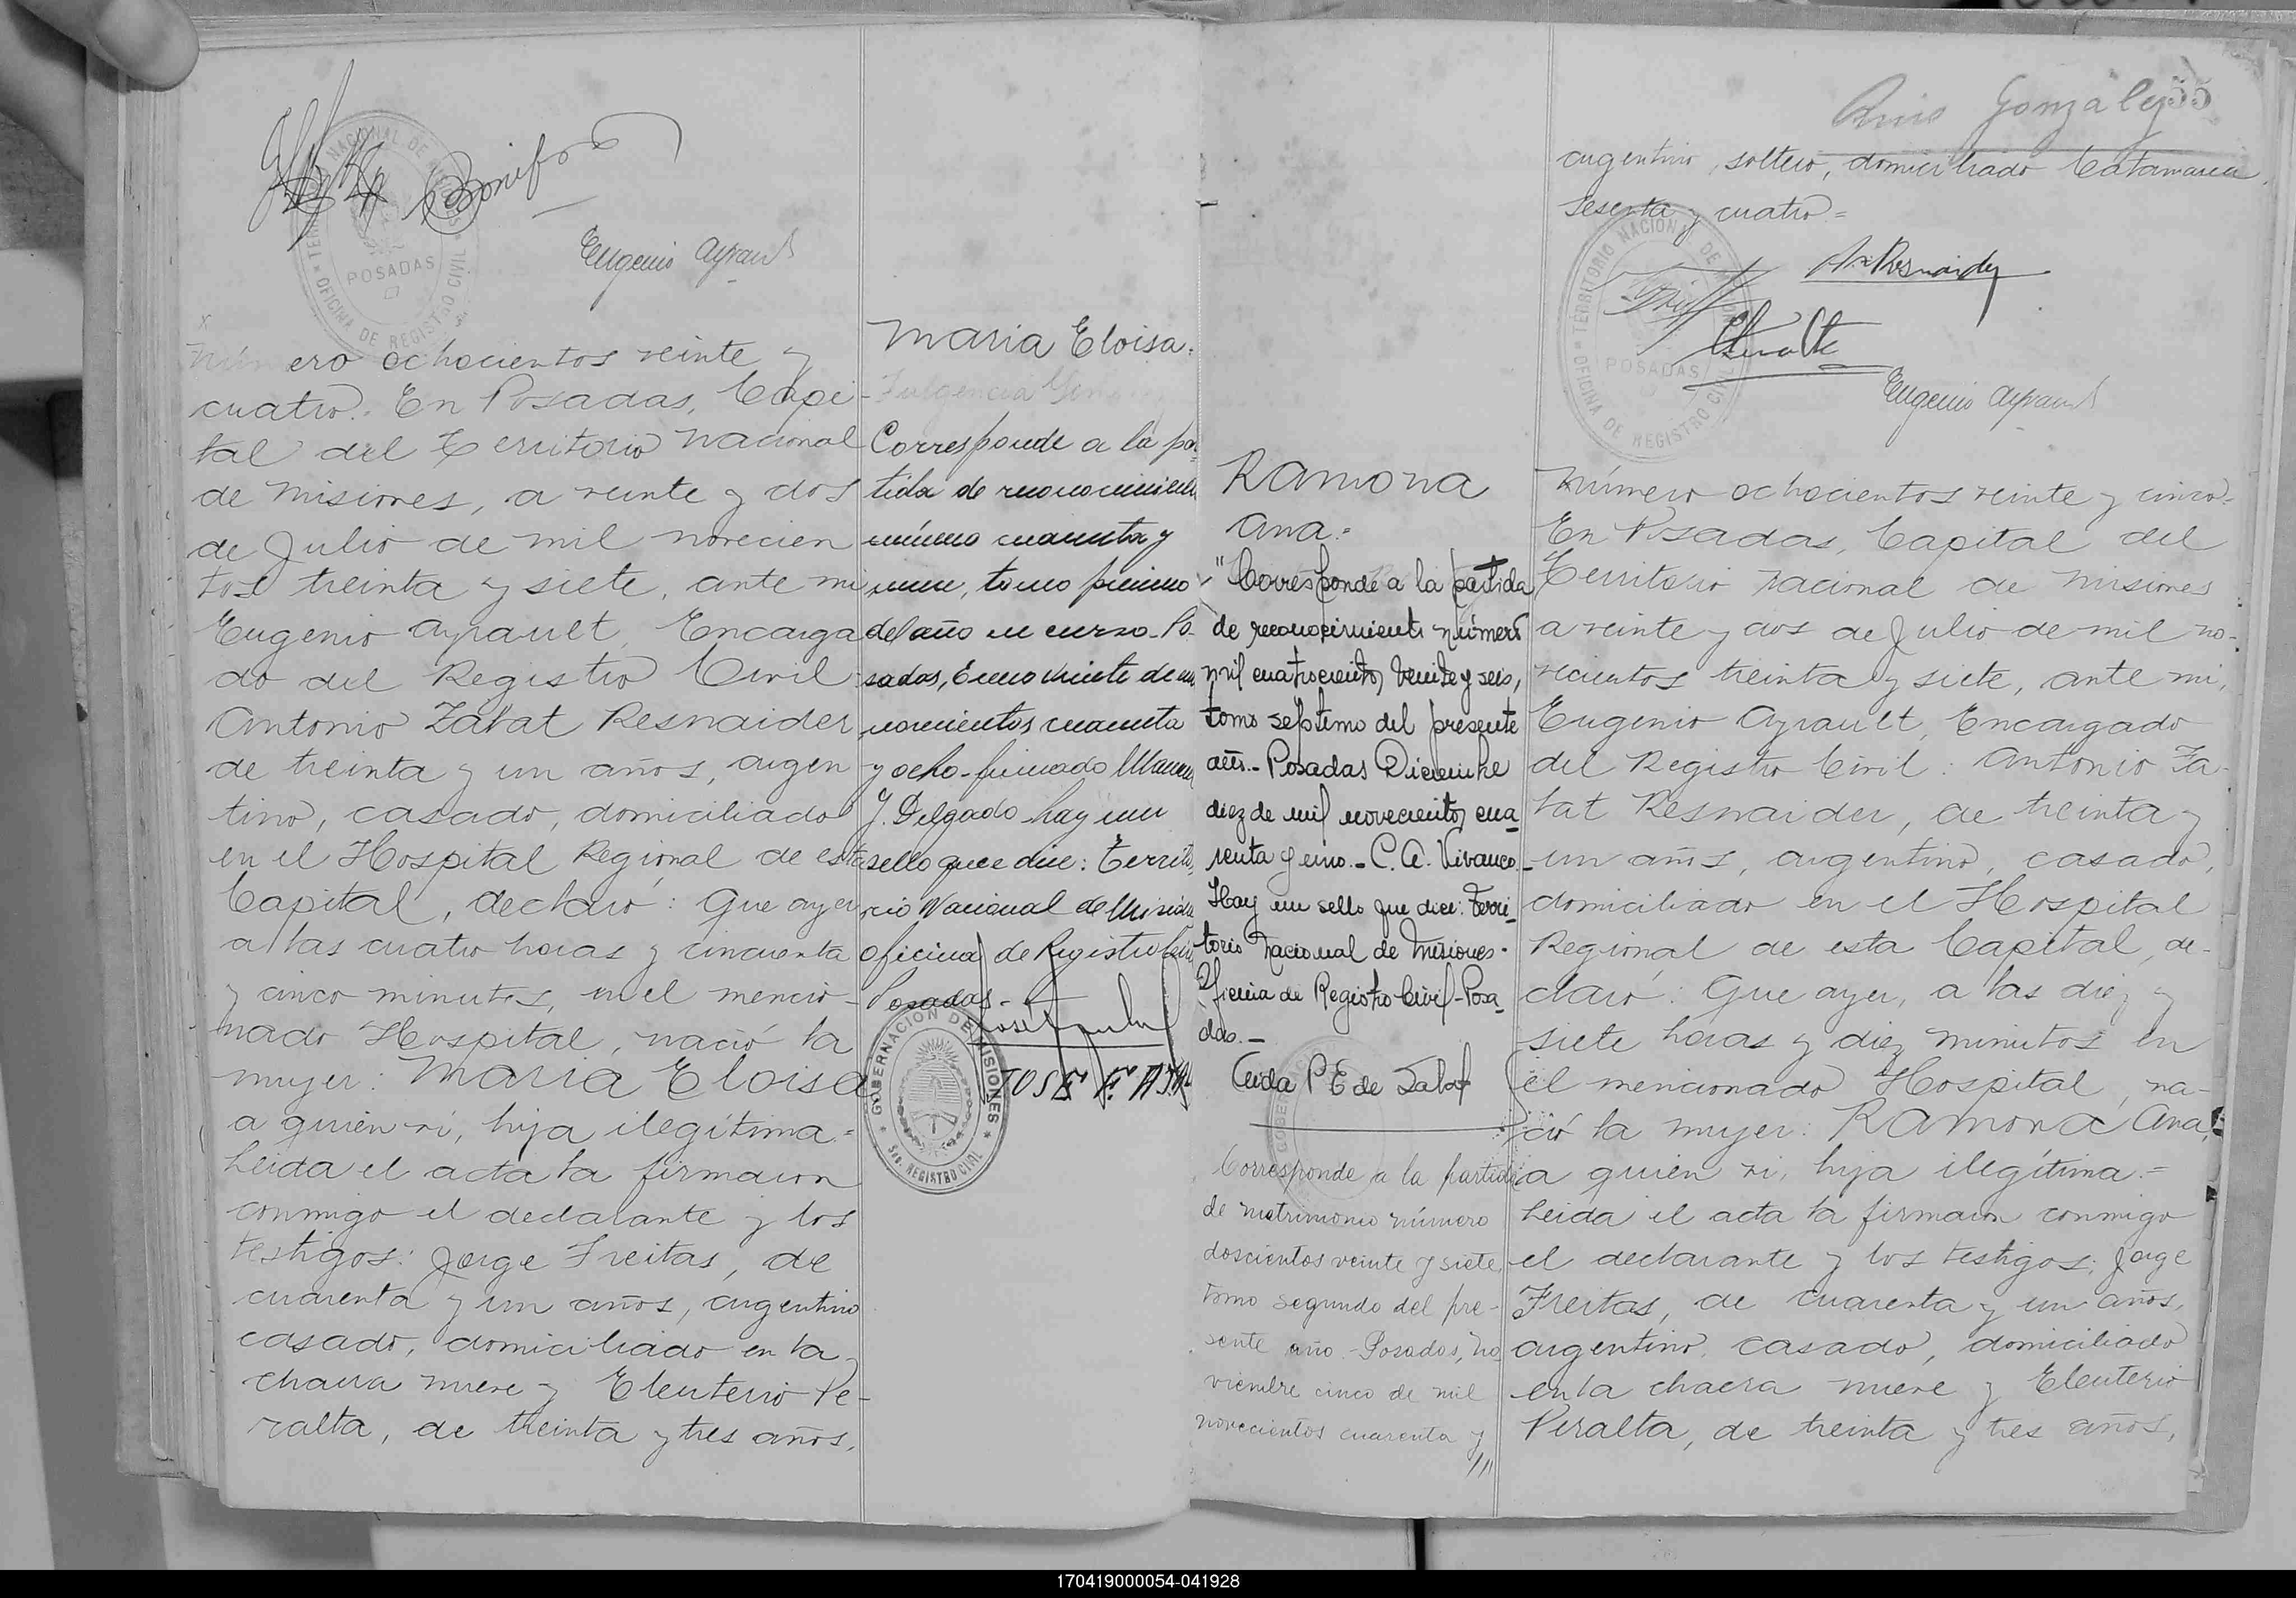 TERRITORIO NACIONAL DE MISIONES
OFICINA DE REGISTRO CIVIL
POSADAS
Bonifa
Eugenio Ayrault
x
Número ochocientos veinte y
cuatro. En Posadas, Capi-
tal del Territorio Nacional
de Misiones, a veinte y dos
de Julio de mil novecien
tos treinta y siete, ante mi
Eugenio Ayrault, Encarga
do del Registro Civil:
Antonio Zabat Resnaider
de treinta y un años, argen
tino, casado, domiciliado
en el Hospital Regional de esta
Capital, declaró: Que ayer
a las cuatro horas y cincuenta
y cinco minutos, en el mencio-
nado Hospital, nació la
mujer: Maria Eloisa
a quien vi, hija ilegítima.=
Leida el acta la firmaron
conmigo el declarante y los
testigos: Jorge Freitas, de
cuarenta y un años, argentino
casado, domiciliado en la
chacra nueve y Eleuterio Pe-
ralta, de treinta y tres años,
Maria Eloisa.
Fulgencia
Corresponde a la par
tida de reconocimiento
número cuarenta y
uno, tomo primero
del año en curso. Po-
sadas, Enero veinte de mil
novecientos cuarenta
y ocho - firmado
J. Delgado - hay un
sello que dice: Territo
rio Nacional de Misiones
Oficina de Registro Civil
Posadas.-
JOSE F.
GOBERNACION DE MISIONES
REGISTRO CIVIL
Ramona
Ana.=
"Corresponde a la partida
de reconocimiento número
mil cuatrocientos veinte y seis,
tomo septimo del presente
año.- Posadas Diciembre
diez de mil novecientos cua-
renta y uno.- C. A. Vivanco.-
Hay un sello que dice: Terri-
torio Nacional de Misiones.
Oficina de Registro Civil-Posa-
das.-
P E de Zalaf
Corresponde a la partida
de matrimonio número
doscientos veinte y siete,
tomo segundo del pre-
sente año.- Posadas, No
viembre cinco de mil
novecientos cuarenta y
///
Gonzalez 55
argentino, soltero, domiciliado Catamarca
sesenta y cuatro=
TERRITORIO NACIONAL DE MISIONES
OFICINA DE REGISTRO CIVIL
POSADAS
Resnaider
Eugenio Ayrault
Número ochocientos veinte y cinco=
En Posadas, Capital del
Territorio Nacional de Misiones
a veinte y dos de Julio de mil no-
vecientos treinta y siete, ante mi,
Eugenio Ayrault, Encargado
del Registro Civil: Antonio Za-
bat Resnaider, de treinta y
un años, argentino, casado,
domiciliado en el Hospital
Regional de esta Capital, de-
claró: Que ayer, a las diez y
siete horas y diez minutos en
el mencionado Hospital, na-
ció la mujer: Ramona Ana,
a quien vi, hija ilegítima.=
Leida el acta la firmaron conmigo
el declarante y los testigos: Jorge
Freitas, de cuarenta y un años,
argentino, casado, domiciliado
en la chacra nueve y Eleuterio
Peralta, de treinta y tres años,
170419000054-041928